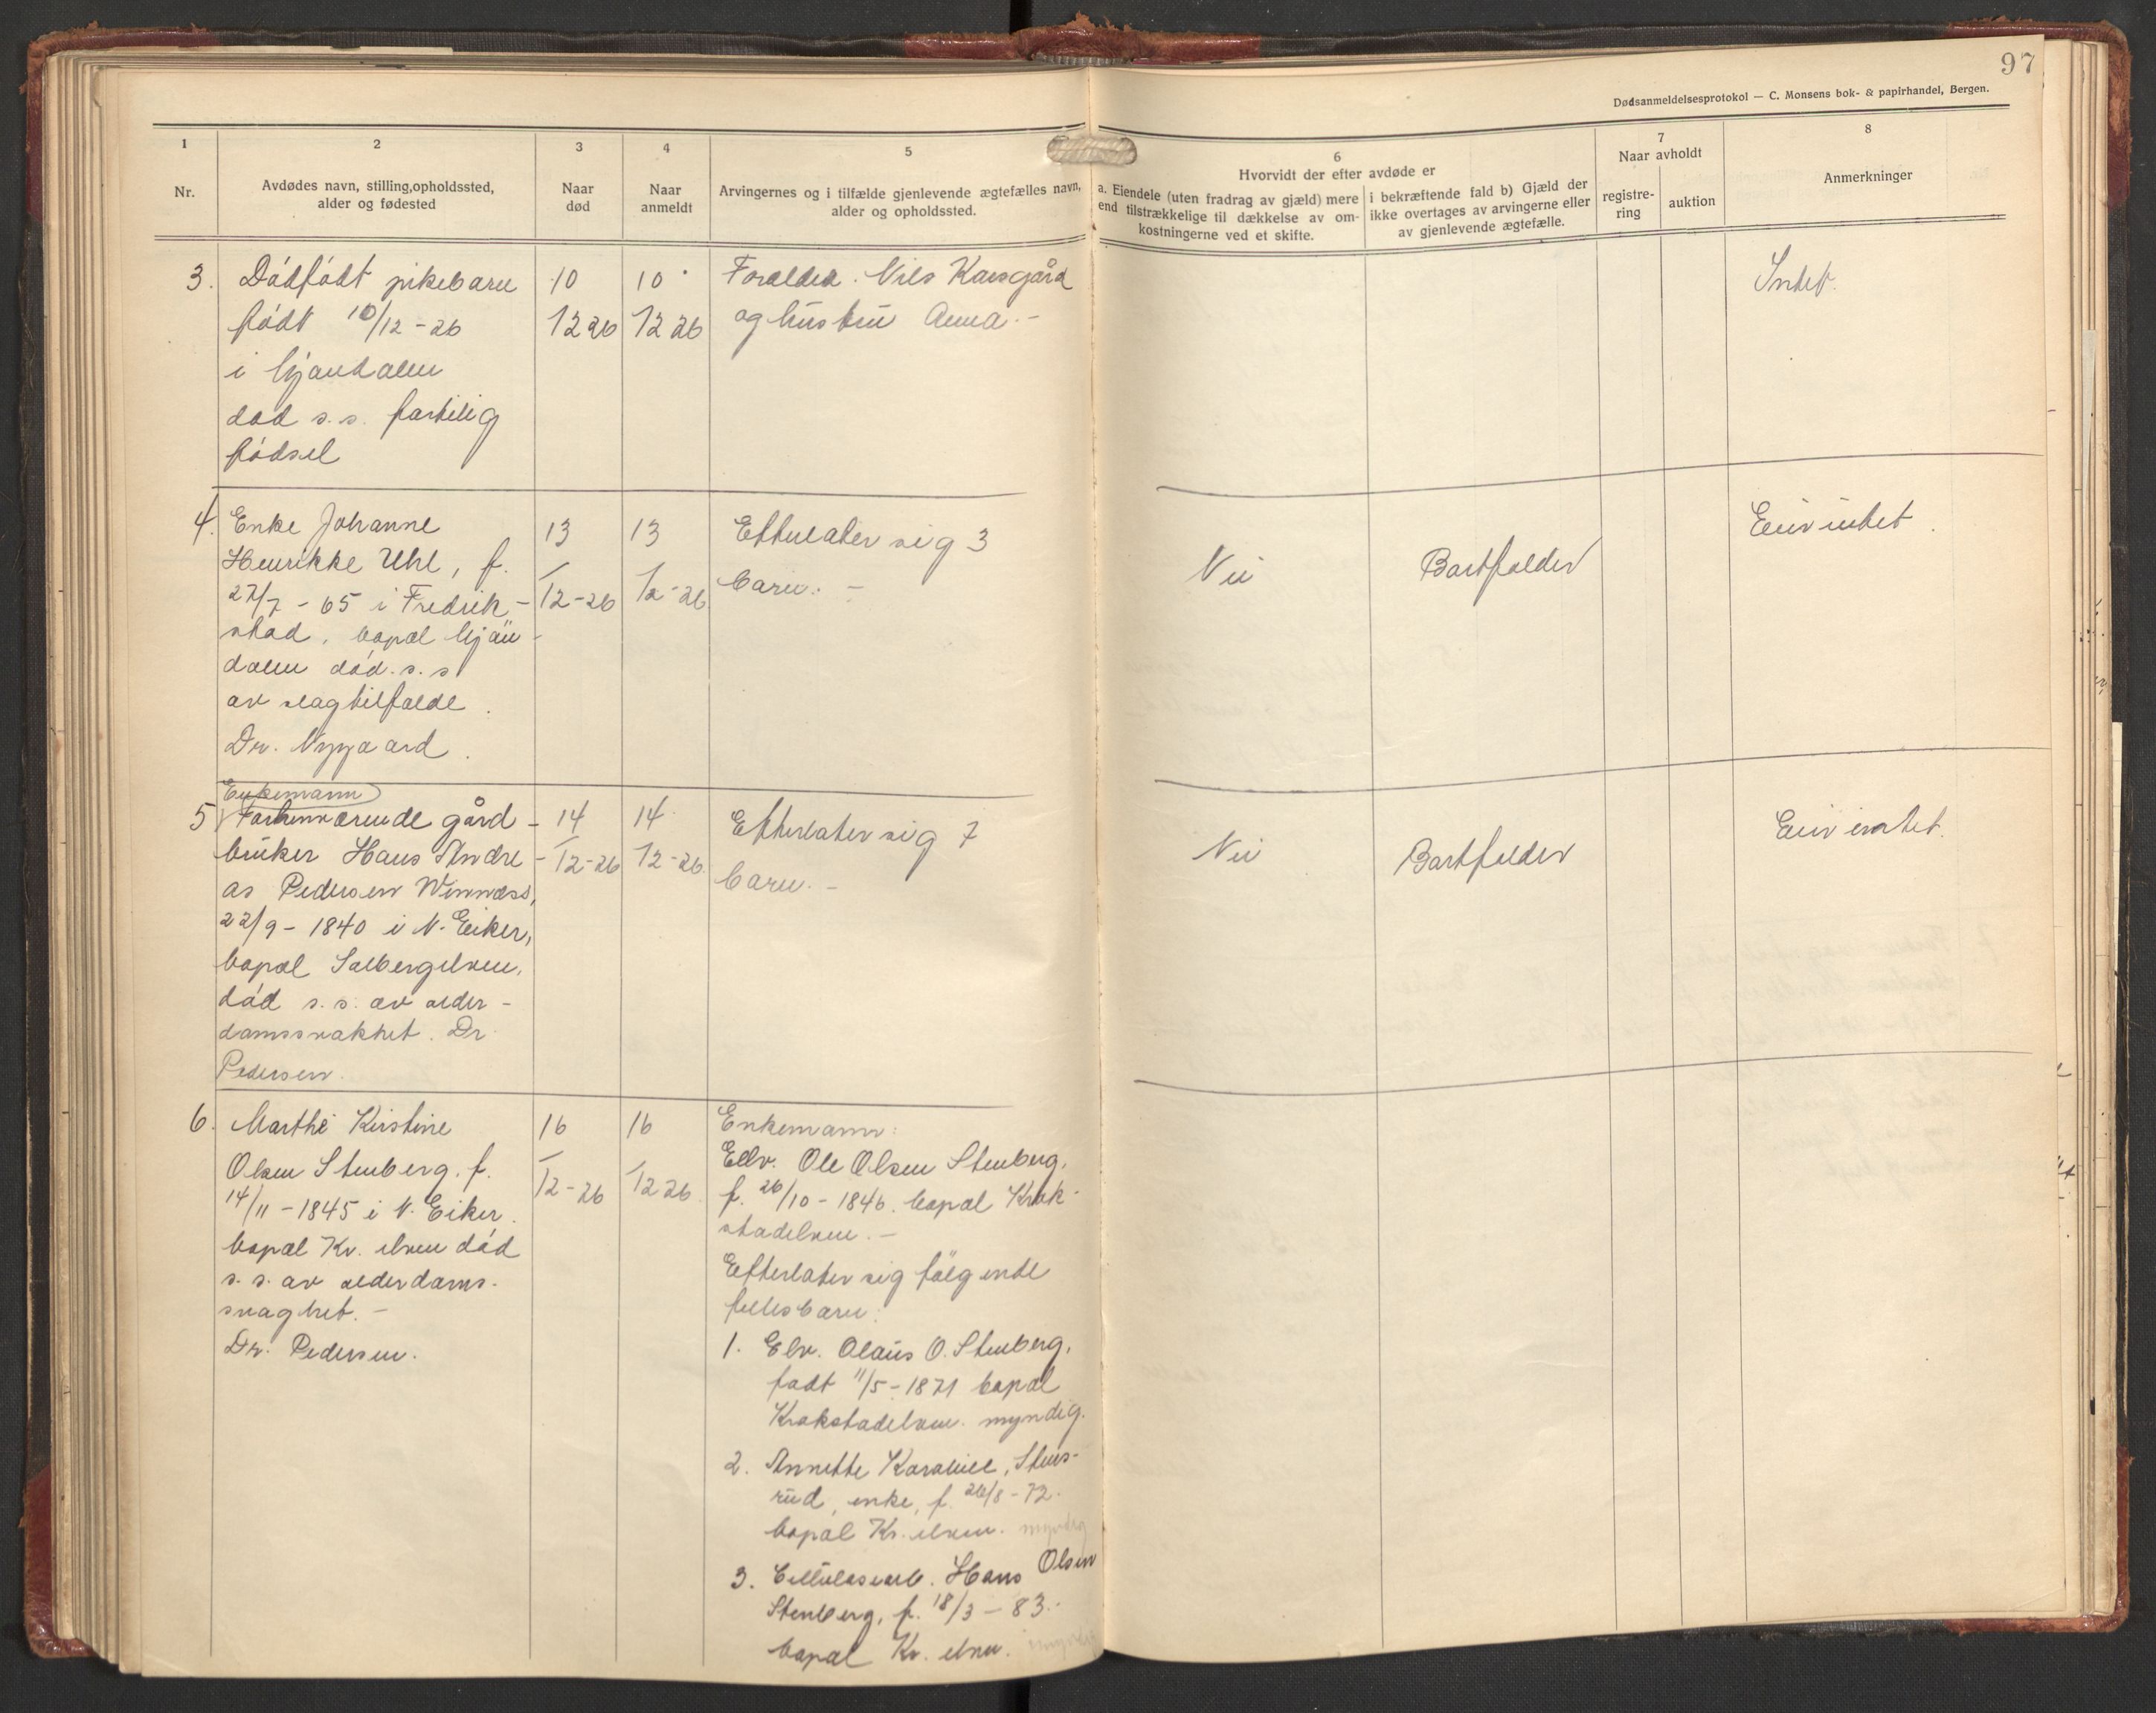 97
Dødsanmeldelsesprotokol — C. Monsens bok- & papirhandel, Bergen.
1
Nr.
2
Avdødes navn, stilling, opholdssted,
alder og fødested
3
Naar
død
4
Naar
anmeldt
5
Arvingernes og i tilfælde gjenlevende ægtefælles navn,
alder og opholdssted.
6
Hvorvidt der efter avdøde er
a. Eiendele (uten fradrag av gjæld) mere
end tilstrækkelige til dækkelse av om-
kostningerne ved et skifte.
i bekræftende fald b) Gjæld der
ikke overtages av arvingerne eller
av gjenlevende ægtefælle.
7
Naar avholdt
registre-
ring
auktion
8
Anmerkninger
3.
Dödfödt pikebarn
födt 10/12 - 26
i Mjöndalen
död s.s. fortidlig
födsel
10
12 26
10
12 26
Foreldre. Nils Korsgård
og hustru Anna. -
Intet.
4.
Enke Johanne
Henrikke Uhl, f.
27/7 - 65 i Fredrik-
stad, bopæl Mjön-
dalen död. s. s
av slagtilfælde.
Dr. Nygaard.
13
/
12-26
13
/
12-26
Efterlater sig 3
barn. -
Nei
Bortfalder
Eier intet.
5
Enkemann
Forhenværende gård-
bruker Hans Andre-
as Pedersen
22/9 - 1840 i N. Eiker,
bopæl Solbergelven,
död s. s. av alder-
damssvakhet. Dr.
Pedersen.
14
/
12-26
14.
12-26.
Efterlater sig 7
barn. -
Nei
Bortfalder
Eier intet.
6.
Marthe Kirstine
Olsen Stenberg, f.
14/11 - 1845 i N. Eiker.
bopæl Kr. elven död
s. s. av alderdams-
svaghet. -
Dr. Pedersen.
16
/
12-26
16
/
12 26.
Enkemann:
Ole Olsen Stenberg,
f. 26/10 - 1846. bopæl Krok-
stadelven. -
Efterlater sig fölgende
fellesbarn:
1. Olaus O. Stenberg,
födt 11/5 - 1871 bopæl
Krokstadelven. myndig.
2. Annette Karoline, Stens-
rud, enke, f. 26/8 - 72.
bopæl Kr. elven. myndig
3. Cellulosearb. Hans Olsen
Stenberg, f. 18/3 - 83. -
bopæl Kr. elven. myndig